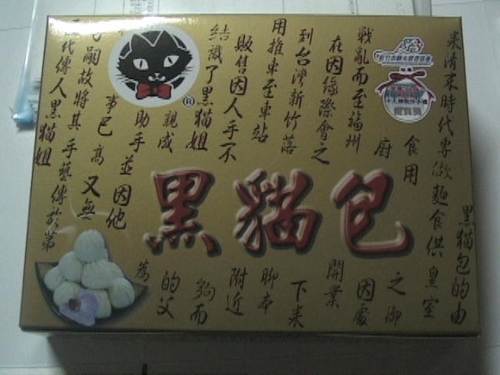 黑貓包
黑貓包的由
來清末時代專做麵食供皇室
食用
之御
廚
因
戰亂而至福州
開業
在因緣際會之
下來
到台灣新竹落
腳
用推車至車站
附近
販售因人手不
夠而
結識了黑貓姐
的父
親成
為
助手並因他
事已高又無
嗣故將其手藝傳於第
代傳人黑貓姐
®